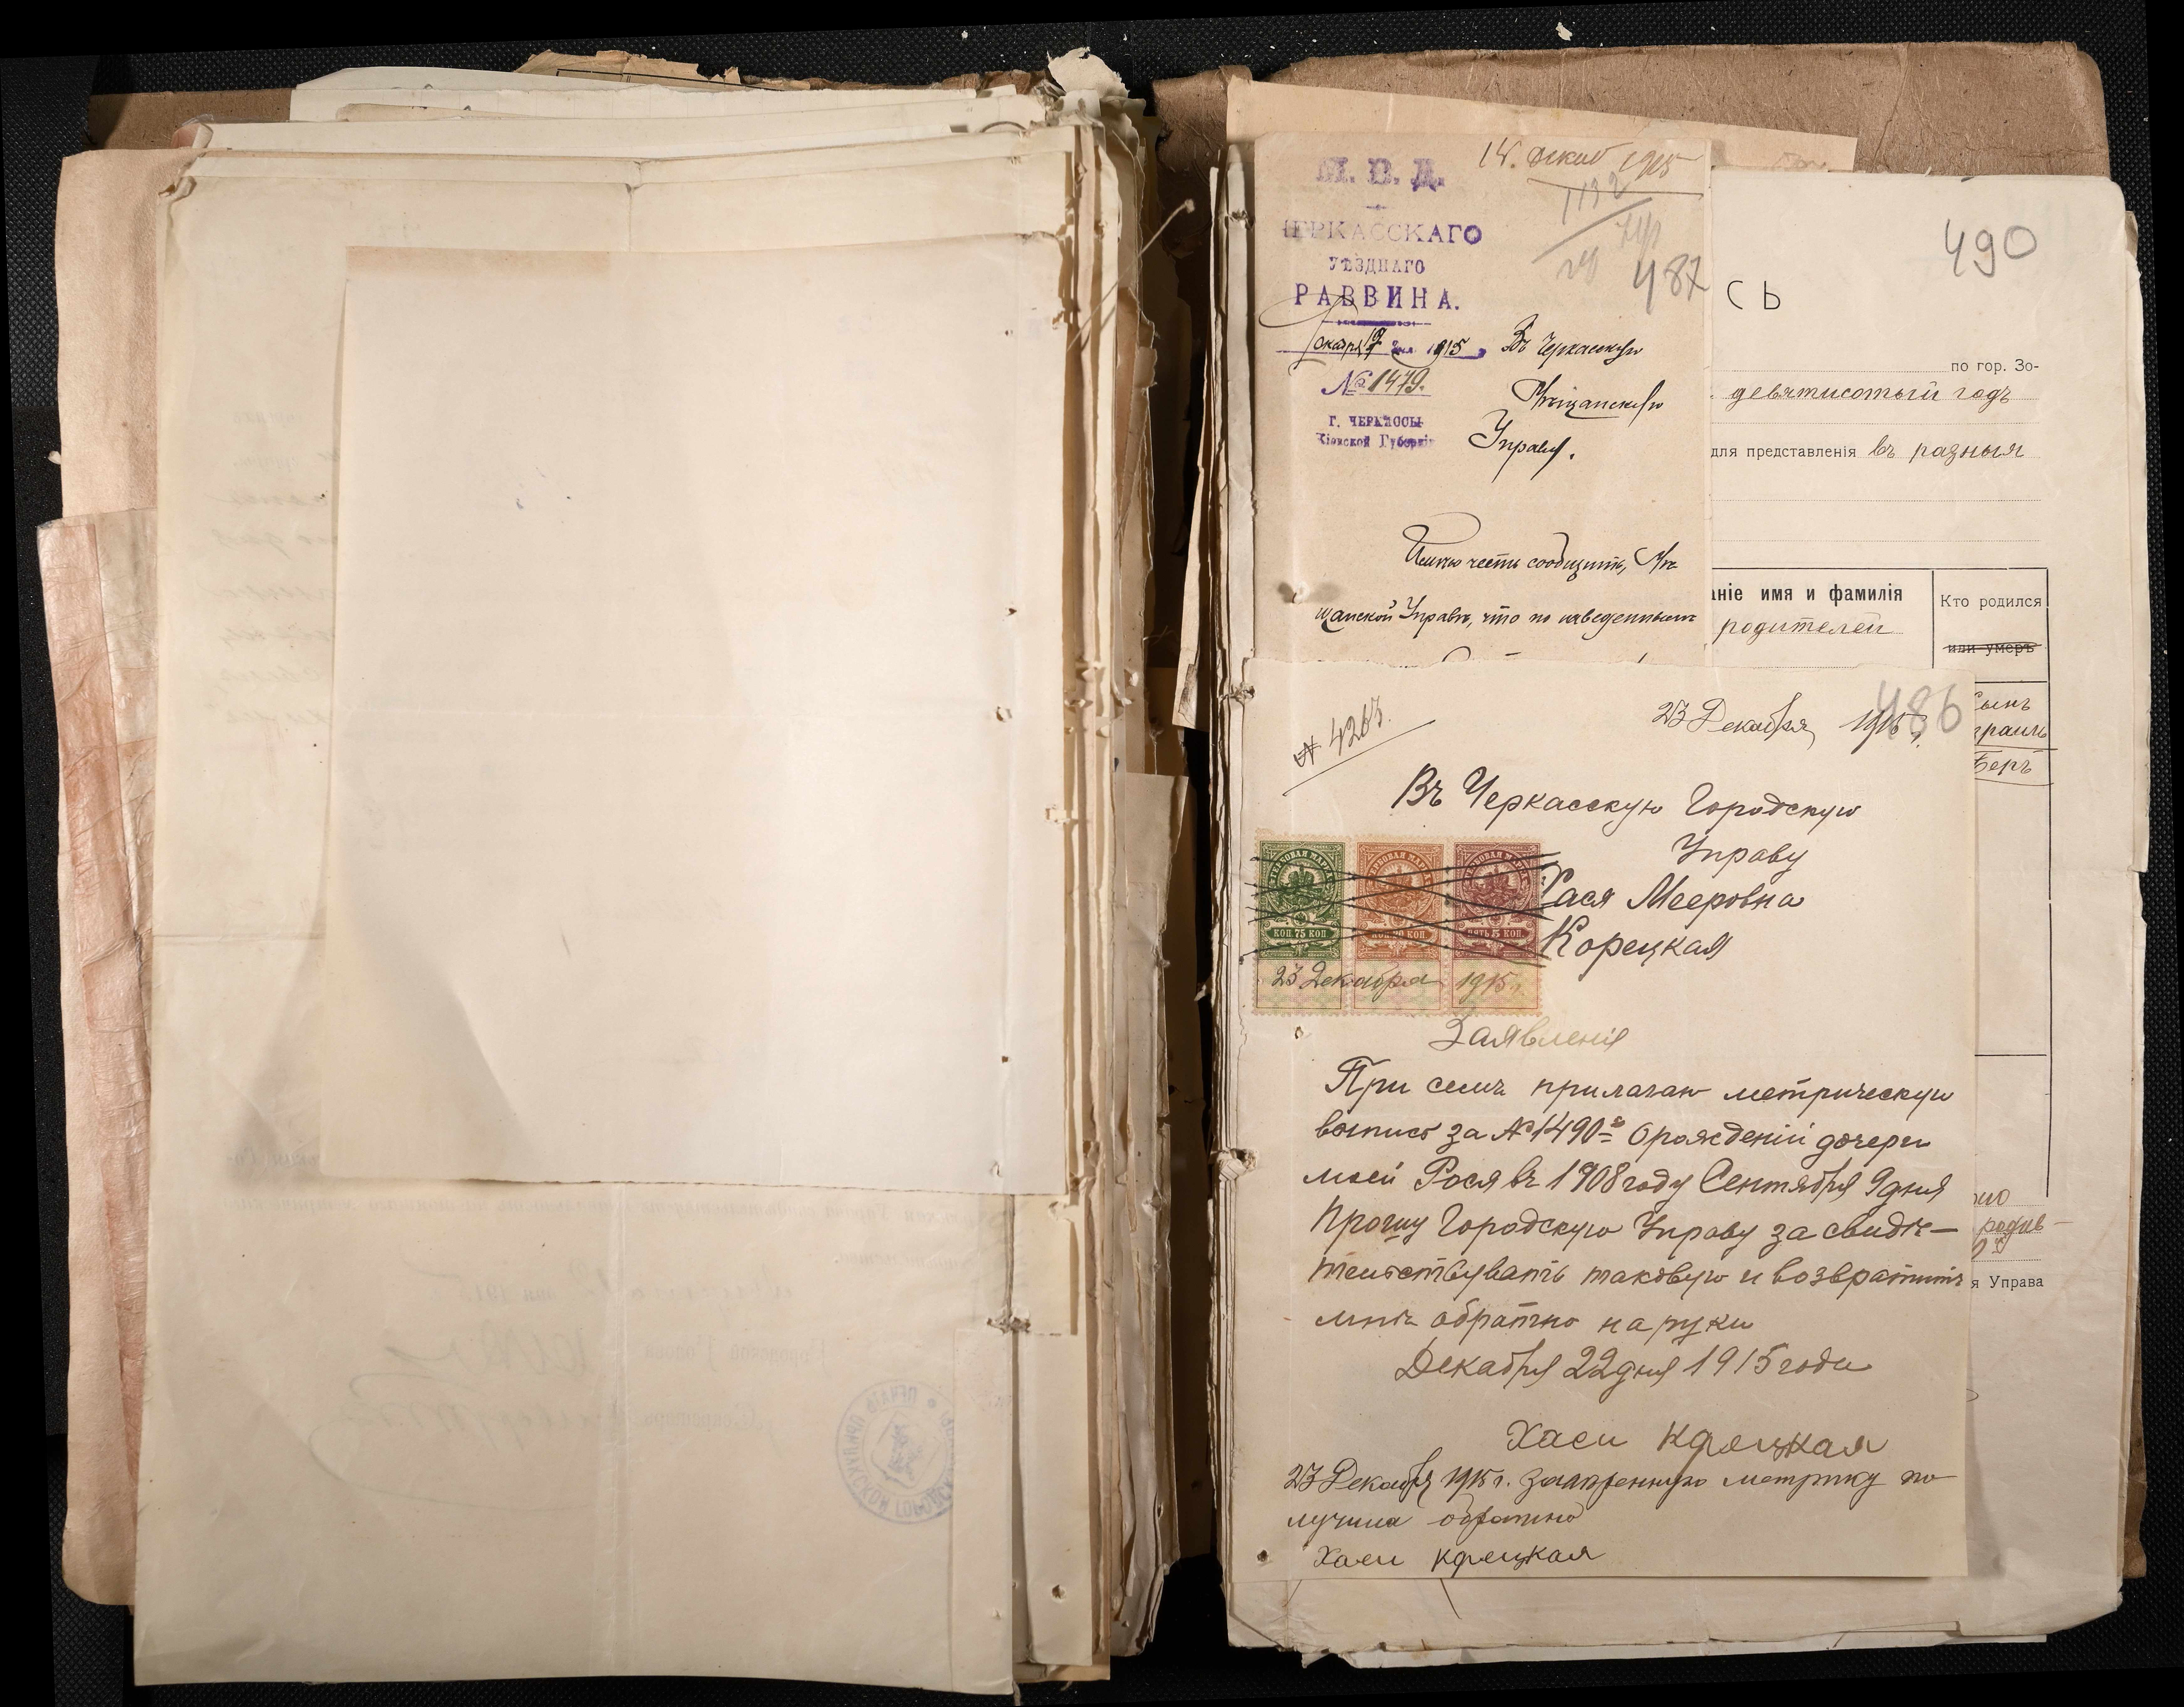 М. В. Д.
ЧЕРКАССКАГО
УѢЗДНАГО
РАВВИНА.
1915
№ 1479.
Г. ЧЕРКАССЫ
Кіевской Губерніи
14. декаб 1915
1132
487
Въ Черкасскую
Мѣщанскую
Управу.
Имѣю честь сообщить, Мѣ-
щанской Управѣ, что по наведеннымъ
490
СЬ
по гор. Зо-
девятисотый годъ
для представленія въ разныя
аніе имя и фамилія
родителей
Кто родился
или умеръ
Сынъ
Беръ
я Управа
№ 4263.
23 Декабря 1915 г.
486
Въ Черкасскую Городскую
Управу
Хася Мееровна
Корецкая
ГЕРБОВАЯ МАРКА
КОП. 75 КОП
ГЕРБОВАЯ МАРКА
КОП. 20 КОП
ГЕРБОВАЯ МАРКА
ПЯТЬ 5 КОП.
23 Декабря 1915 г.
Заявленія
При семъ прилагаю метрическую
выпись за № 1490 о рожденій дочери
моей Рося въ 1908 году Сентября 9 дня
Прошу Городскую Управу за свидѣ-
тельствувать таковую и возвратить
мнѣ обратно на руки
Декабря 22 дня 1915 года
Хаси Крецкая
23 Декабря 1915 г. заверенную метрику по
лучила обратно
Хаси Крецкая